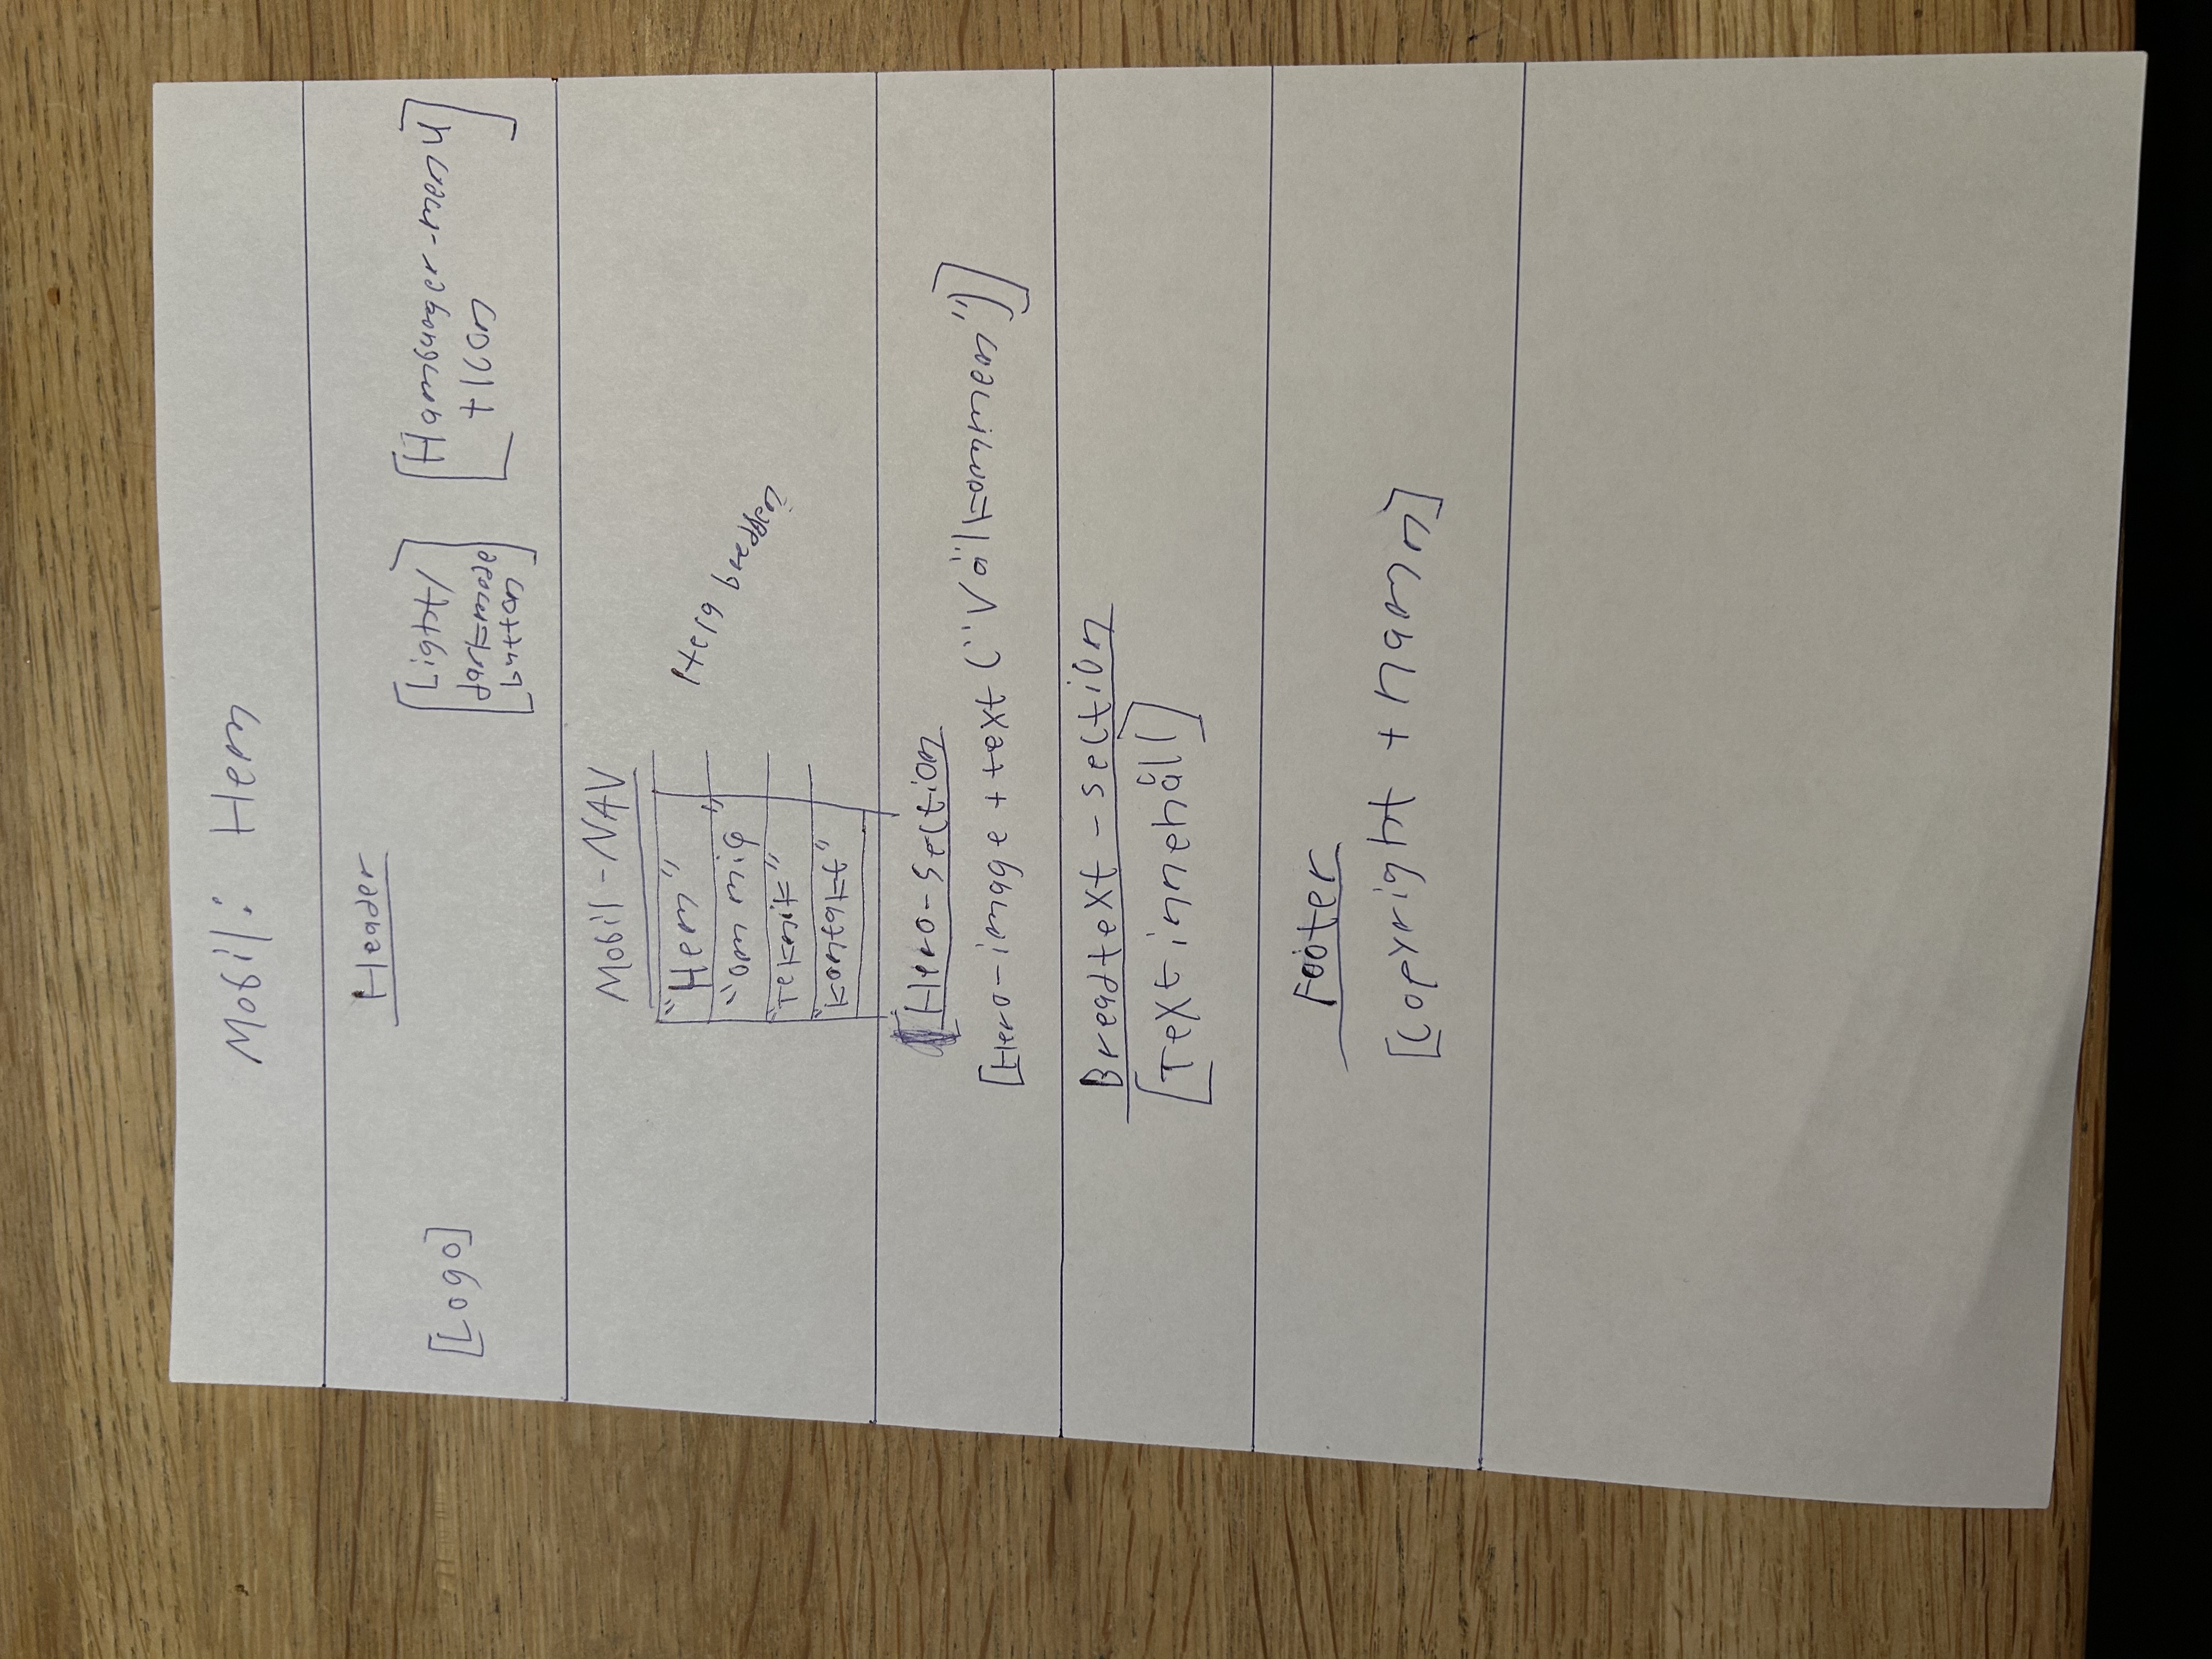 Mobil: Hem
Header
[Logo]
[Light/
darkmode
button]
[Hamburger-menu
+Icon]
Mobil-NAV
"Hem"
"om mig"
"Teknik"
"kontakt"
Hela bredden
[Hero-section
[Hero-image + text ("Välkommen")]
Breadtext-section
[Text innehåll]
Footer
[Copyright + namn]